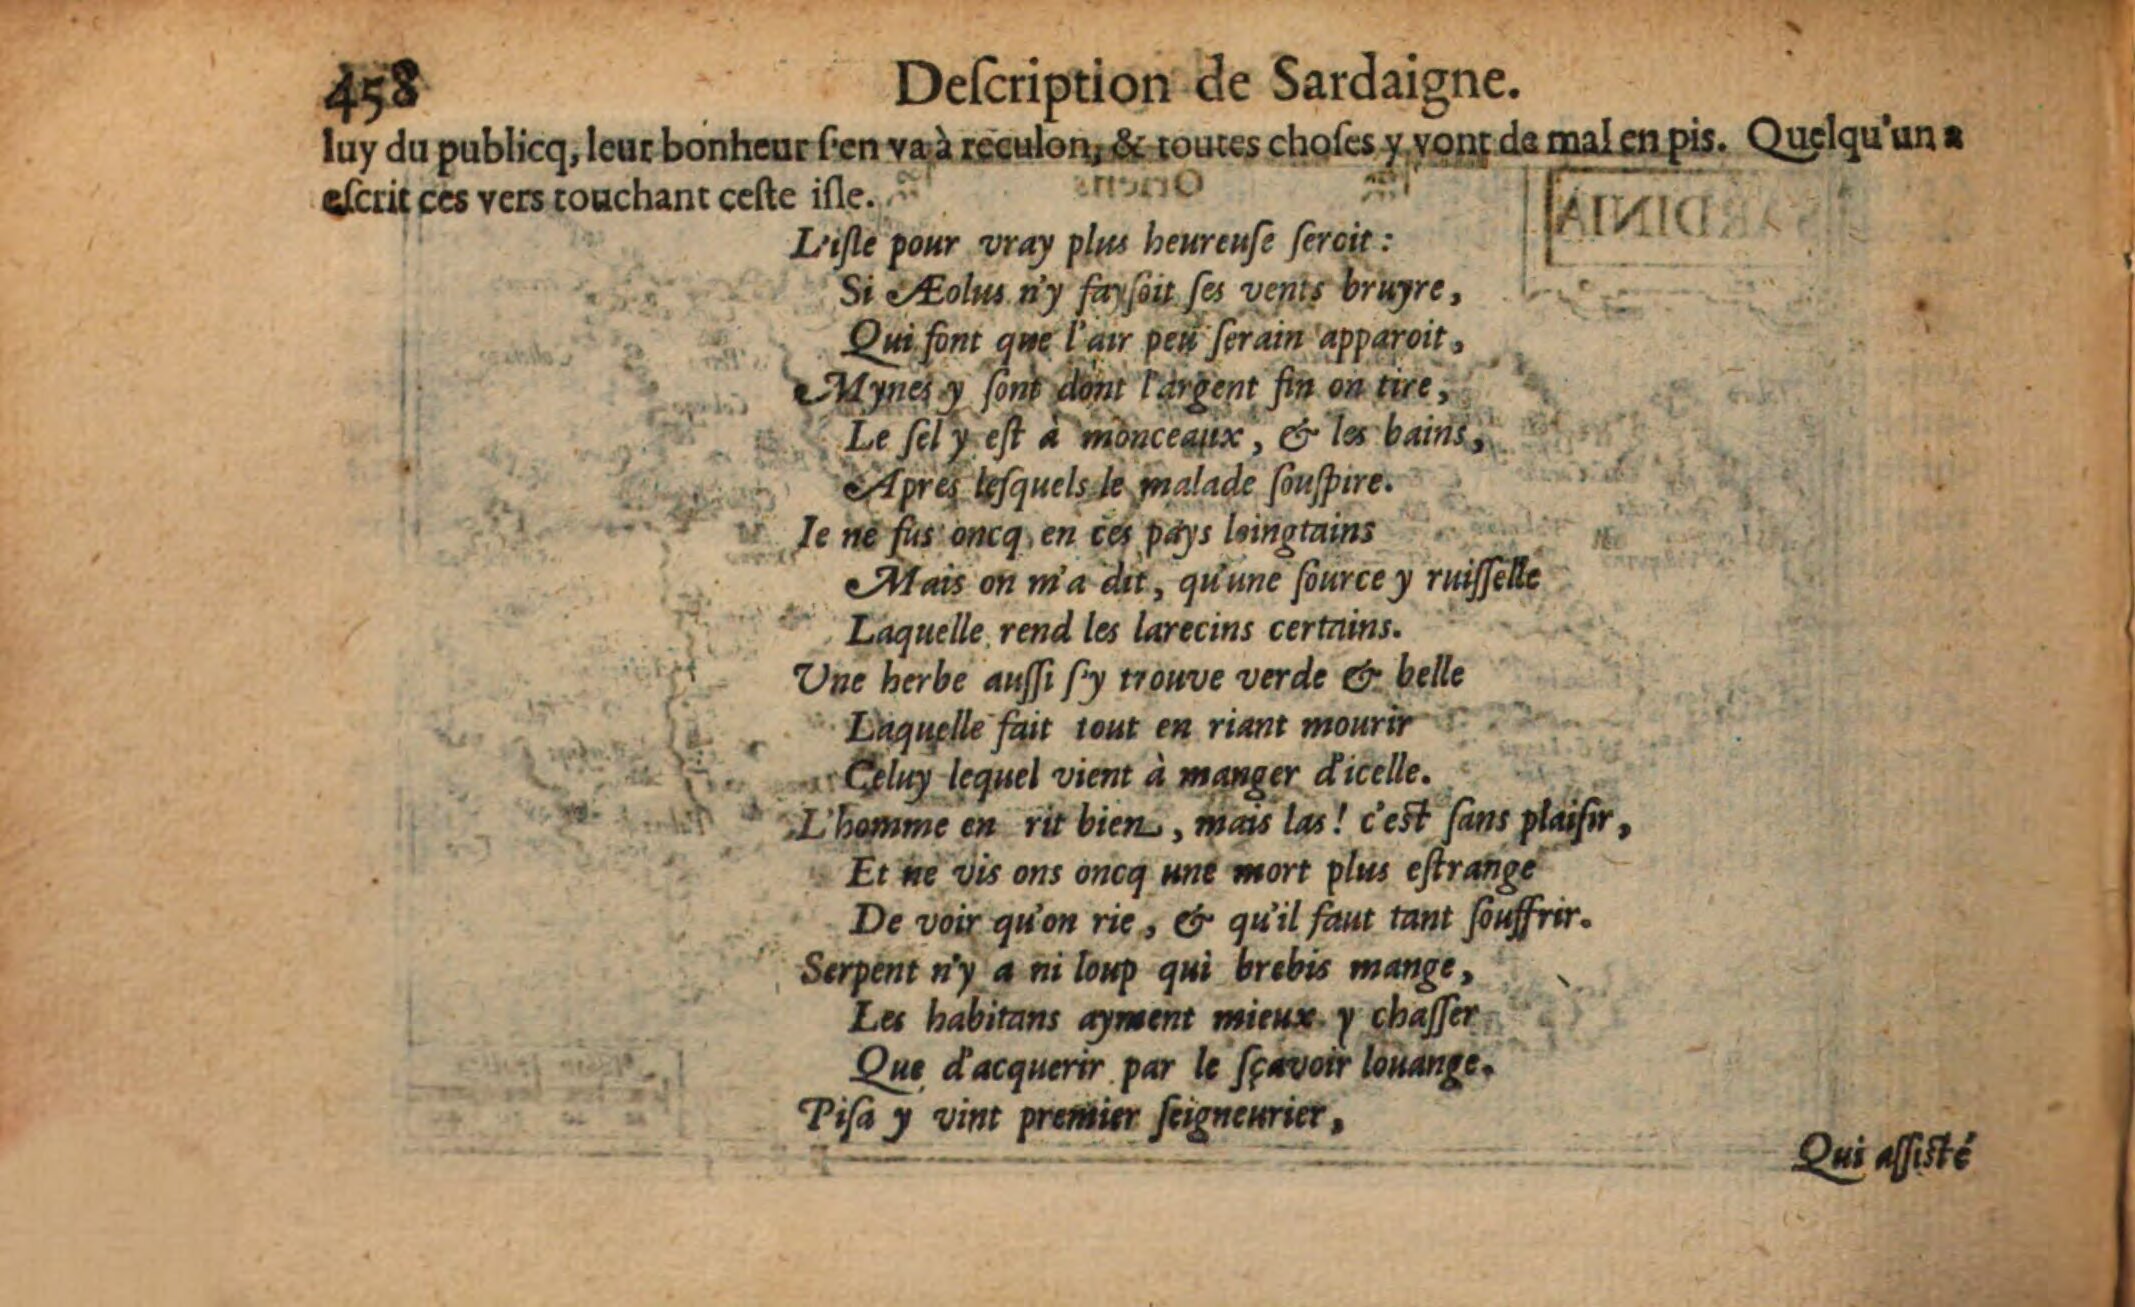 458 Deſcription de Sardaigne.
luy du publicq, leur bonheur ſ'en va à reculon, & toutes choſes y vont de mal en pis. Quelqu'un a
eſcrit ces vers touchant ceſte iſle.
Oriens
SARDINIA
L'iſle pour vray plus heureuſe ſeroit:
Si Æolus n'y fayſoit ſes vents bruyre,
Qui font que l'air peu ſerain apparoit,
Mynes y ſont dont l'argent fin on tire,
Le ſel y eſt à monceaux, & les bains,
Apres leſquels le malade ſouſpire.
Ie ne fus oncq en ces pays loingtains
Mais on m'a dit, qu'une ſource y ruiſſelle
Laquelle rend les larecins certains.
Une herbe auſſi ſ'y trouve verde & belle
Laquelle fait tout en riant mourir
Celuy lequel vient à manger d'icelle.
L'homme en rit bien, mais las! c'est ſans plaiſir,
Et ne vis ons oncq une mort plus eſtrange
De voir qu'on rie, & qu'il faut tant ſouffrir.
Serpent n'y a ni loup qui brebis mange,
Les habitans ayment mieux y chaſſer
Que d'acquerir par le ſçavoir louange.
Piſa y vint premier ſeigneurier,
Qui aſſisté